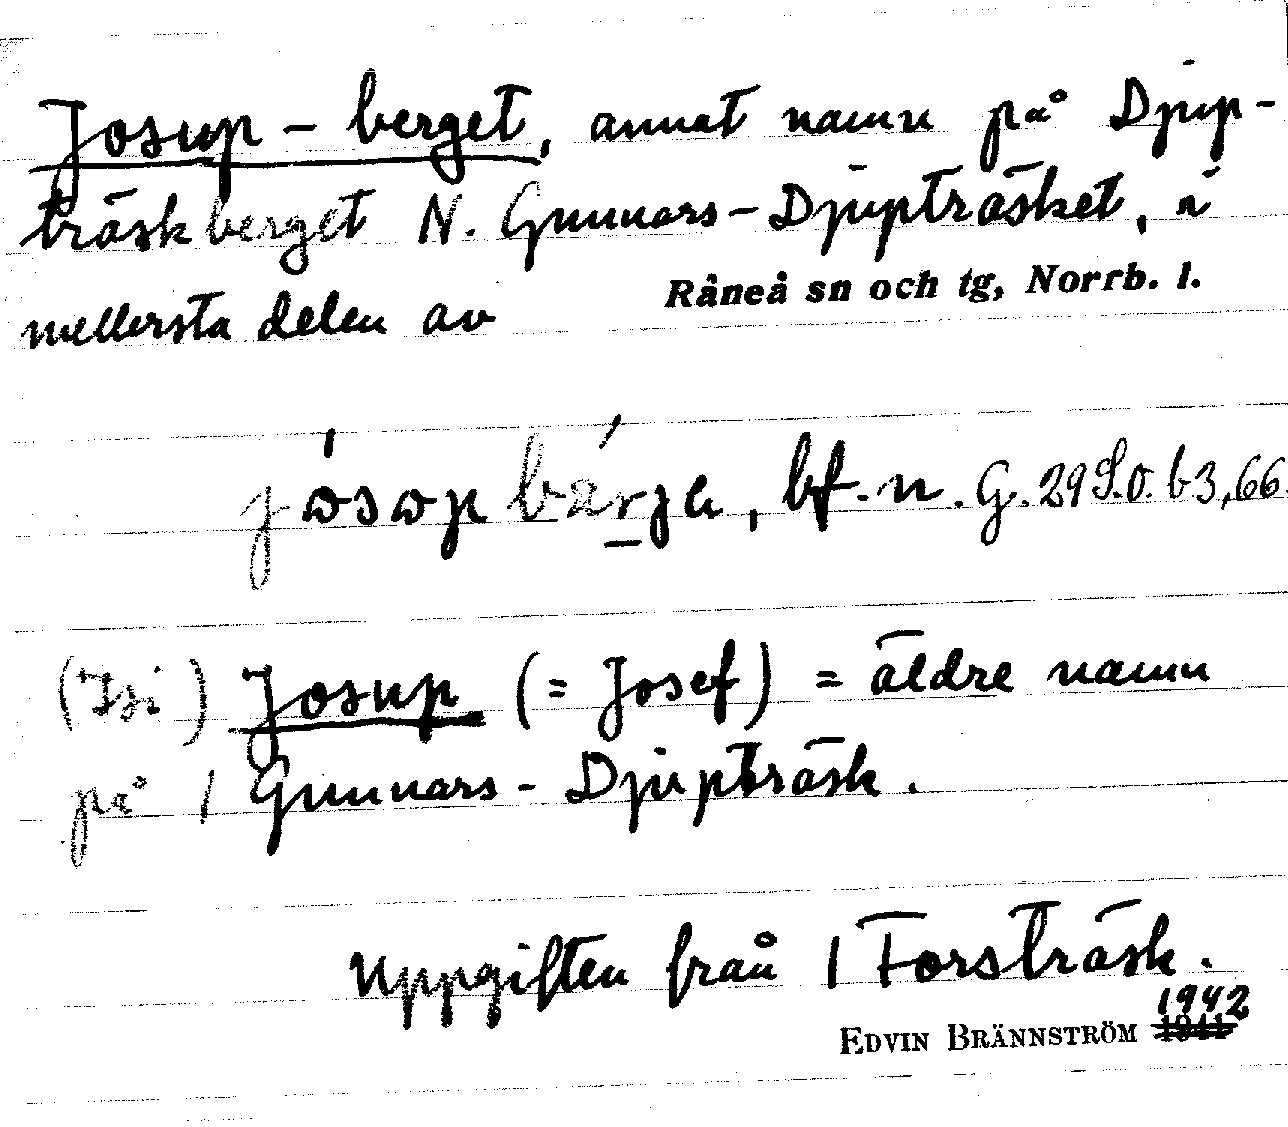 Josup-berget, annat namn på Djup-
träskberget N. Gunnars-Djupträsket, i
mellersta delen av Råneå sn och tg, Norrb. l.
bf. n. G. 29 S.O. b3,66.
(Isi) Josup (= Josef) = äldre namn
på 1 Gunnars-Djupträsk.
Uppgiften från 1 Forsträsk.
1942
EDVIN BRÄNNSTRÖM 1941